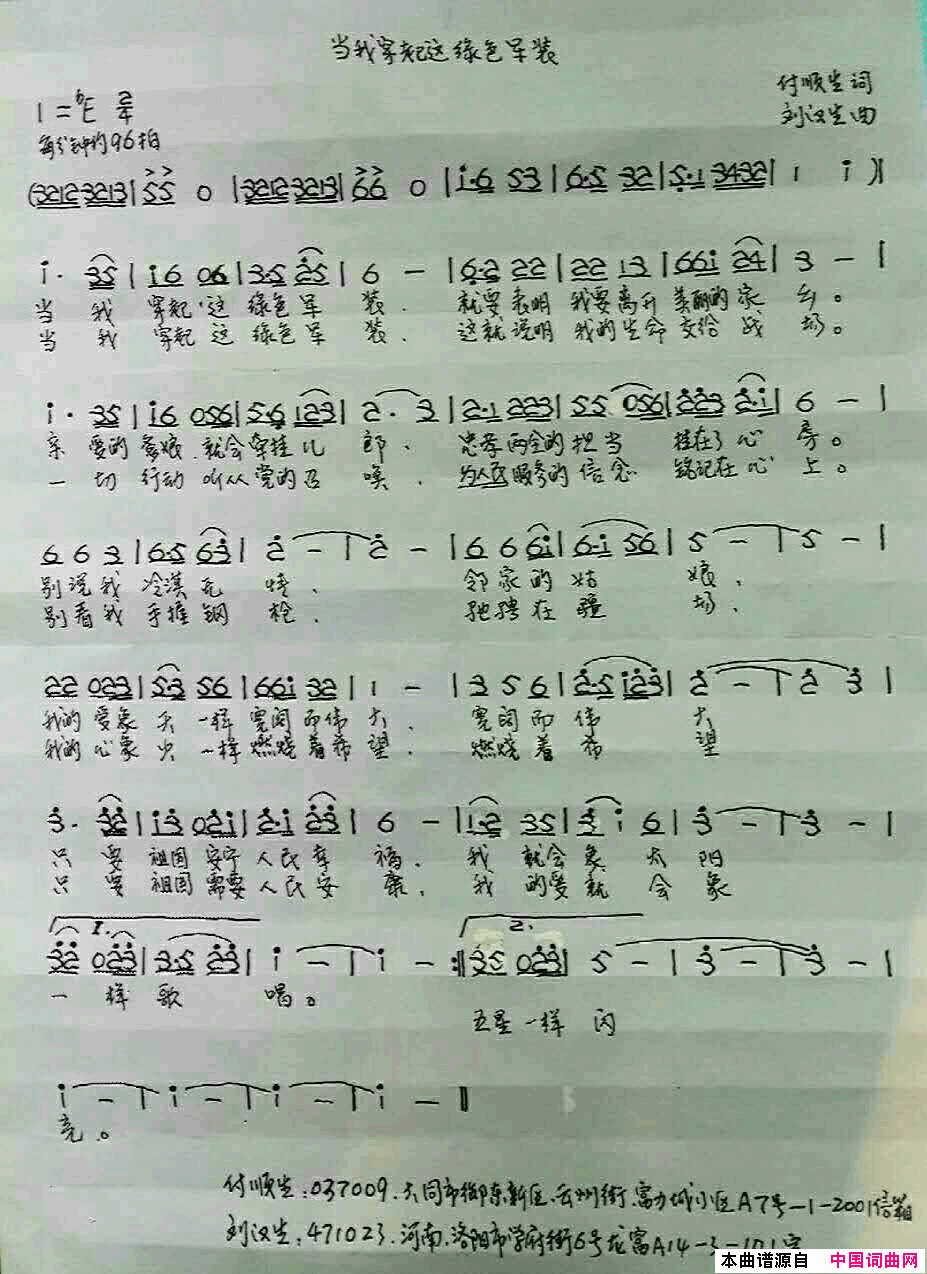 当我穿起这绿色军装
付顺生词
1=ᵇE 2/4
刘汉生曲
每分钟约96拍
(3212 3213|55 0|3212 3213|66 0|i·6 53|6·5 32|5·1 3432|1 i)‖
i· 35|i6 06|35 25|6 -|6·2 22|22 13|66i 24|3 -|
当 我 穿起 这 绿色军 装. 就要表明 我要离开 美丽的家 乡。
当 我 穿起 这 绿色军 装. 这就说明 我的生命 交给战 场。
i· 35|i6 056|5·6 123|2· 3|2·1 223|55 056|223 2·i|6 -|
亲 爱的 爹娘.就会牵挂儿 郎. 忠孝两全的担当 挂在了心 房。
一 切 行动 听从党的召 唤. 为人民服务的信念 铭记在心 上。
6 6 3|6·5 63|2 -|2 -|6 6 6i|6·i 56|5 -|5 -|
别说我 冷漠无 情. 邻家的姑 娘.
别看我 手握钢 枪. 驰骋在疆 场.
22 023|5·3 56|66i 32|1 -|3 5 6|2·5 i23|2 -|2 3|
我的爱象 天一样 宽阔而伟 大. 宽阔而伟 大
我的心象 火一样 燃烧着希 望. 燃烧着希 望
3· 32|i3 02i|2·i 23|6 -|1·2 35|3 i 6|3 -|3 -|
只 要 祖国 安宁 人民幸 福. 我 就会象 太 阳
只 要 祖国 需要 人民安 康. 我 的爱就 会 象
1. 2.
32 023|3·5 23|i -|i -:‖35 023|5 -|3 -|3 -|
一 样 歌 唱。
五星一样 闪
i -|i -|i -|i -‖
亮。
付顺生:037009.大同市御东新区.云州街.富力城小区A7号-1-2001信箱
刘汉生:471023.河南.洛阳市学府街6号龙富A14-3-101室
本曲谱源自 中国词曲网